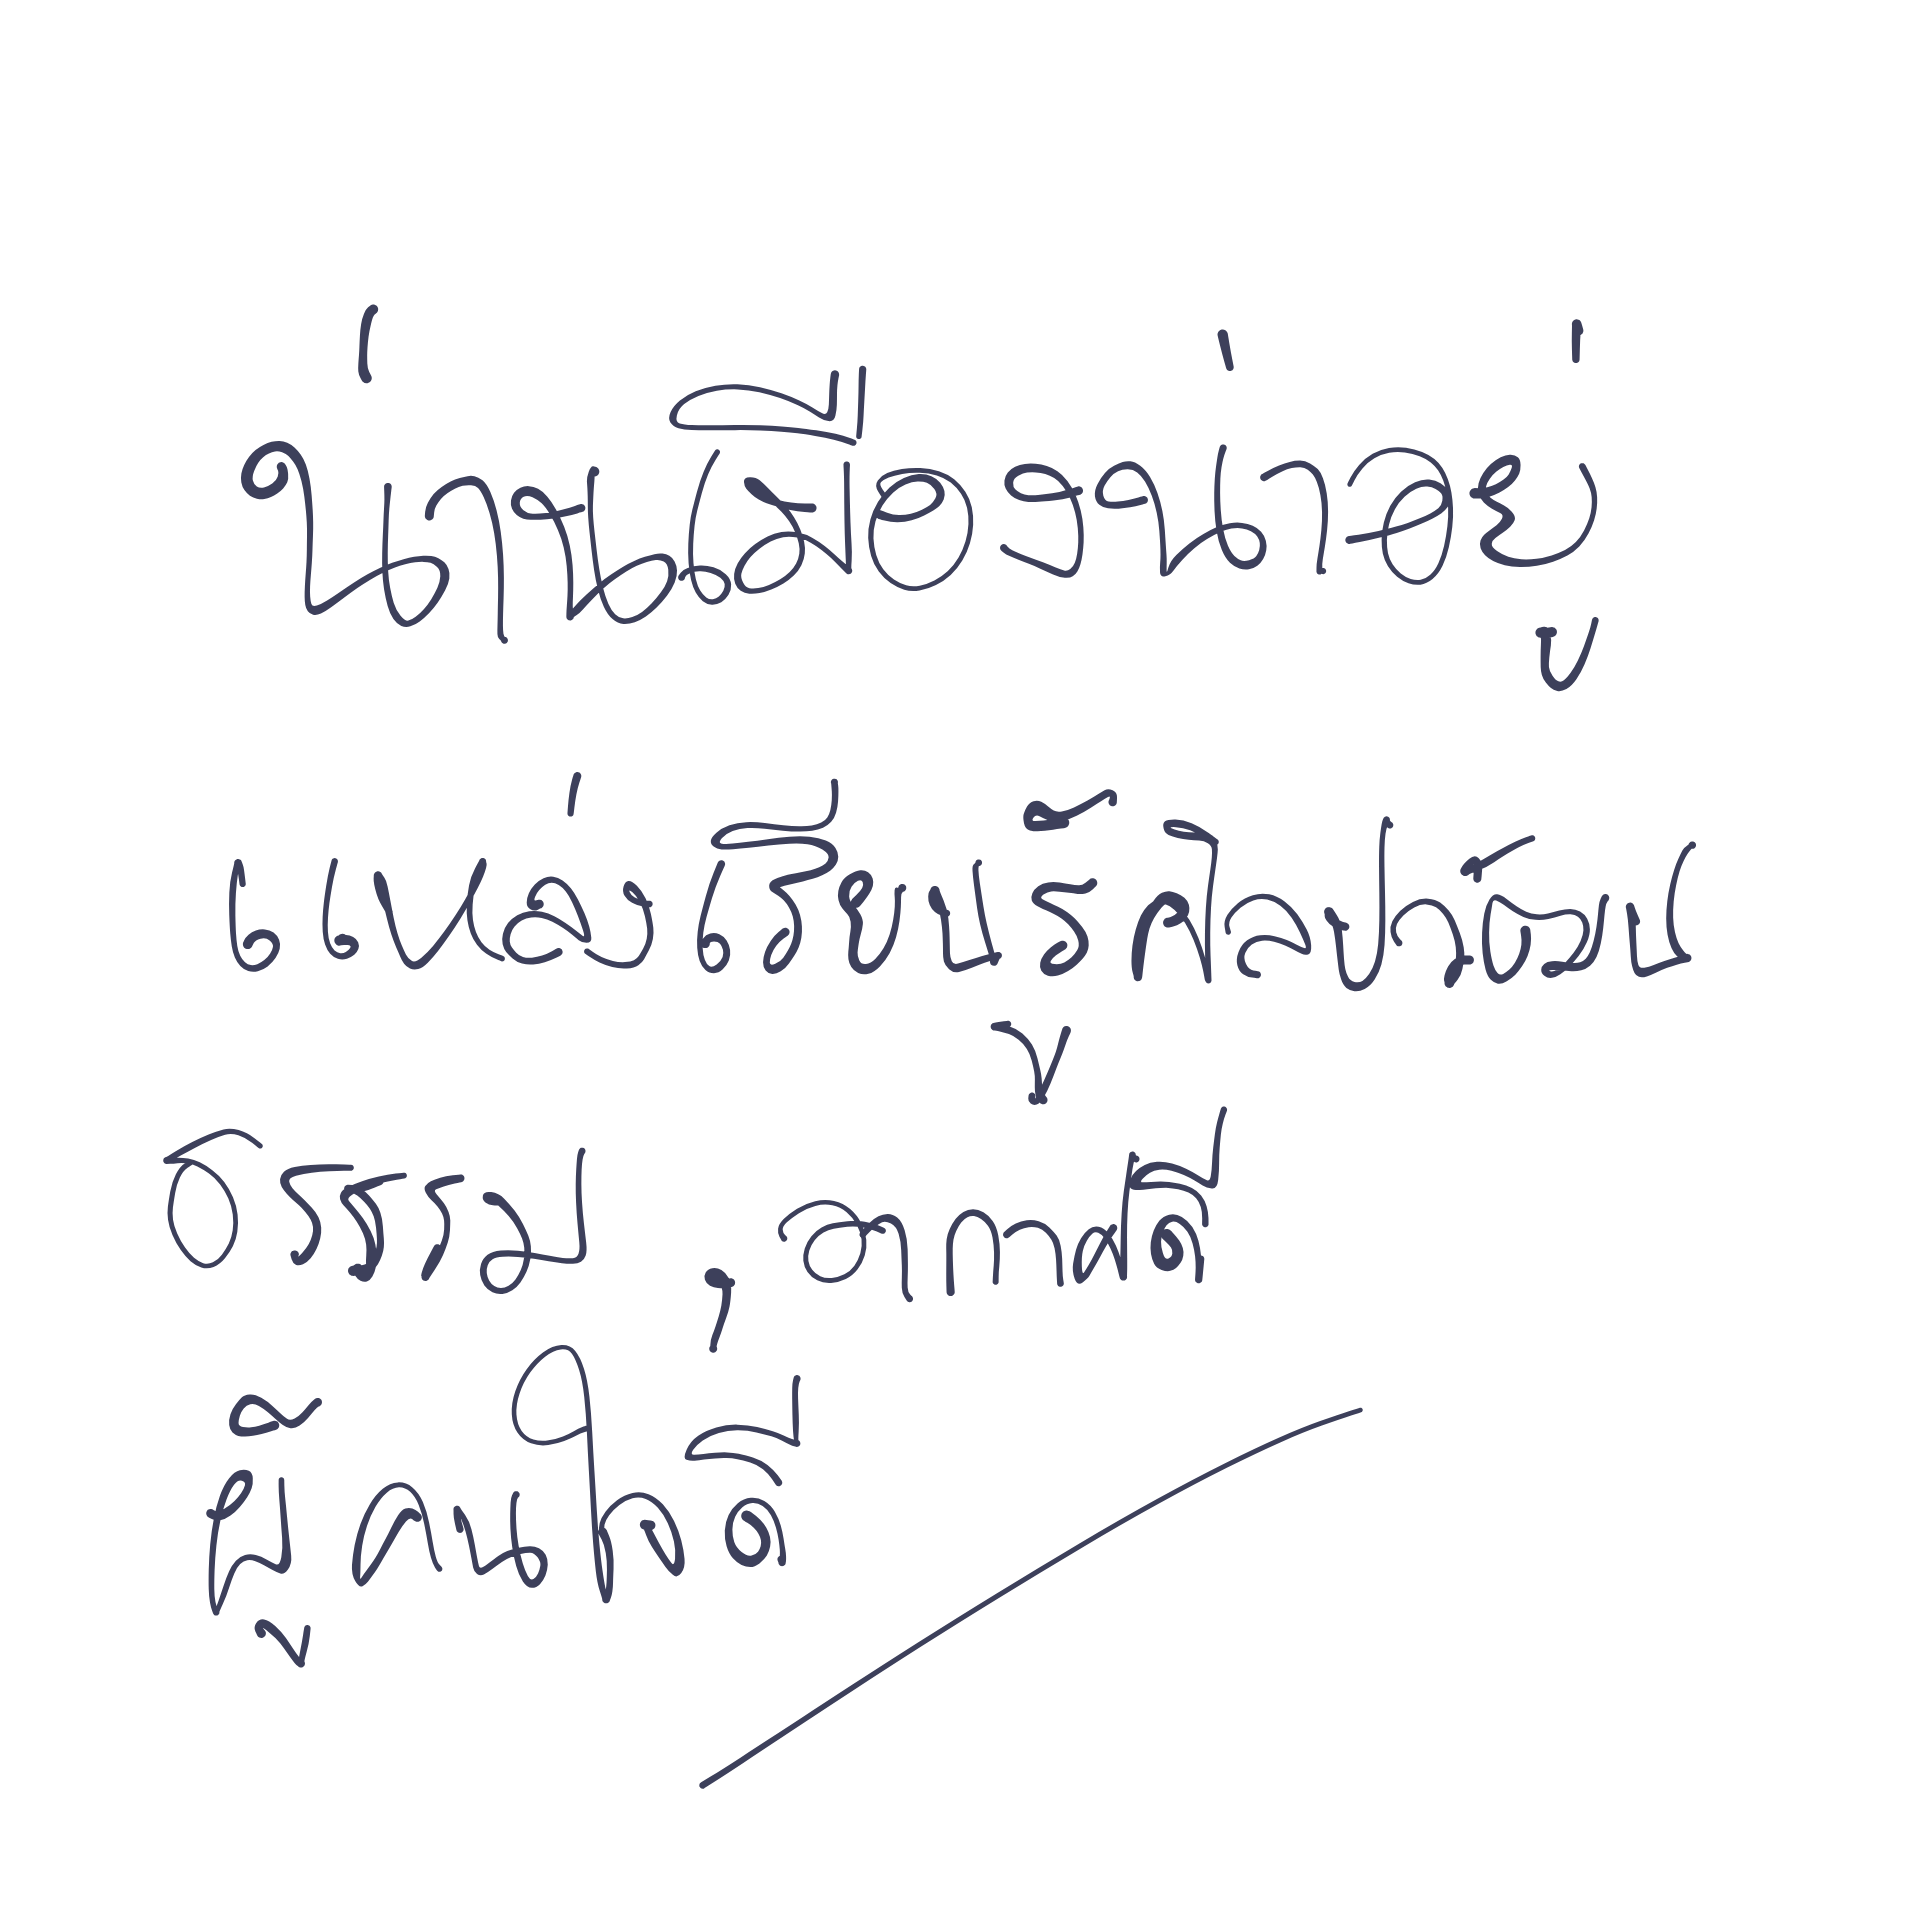 น่านเมืองน่าอยู่
แหล่งเรียนรู้ศิลปวัฒน
ธรรม , อากาศดี
ผู้คนใจดี